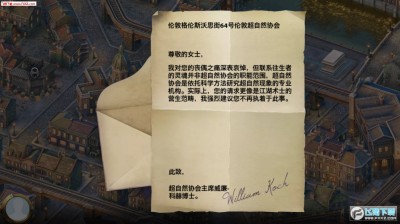 伦敦格伦斯沃思街64号伦敦超自然协会
尊敬的女士，
我对您的丧偶之痛深表哀悼，但联系往生者
的灵魂并非超自然协会的职能范围，超自然
协会是依托科学方法研究超自然现象的专业
机构。实际上，您的请求更像是江湖术士的
营生范畴，我强烈建议您不再执着于此事。
此致，
超自然协会主席威廉·
科赫博士。
William Koch
飞翔下载